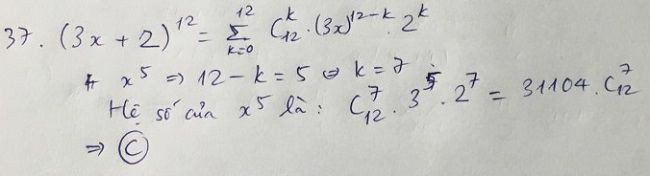 37. (3x + 2)¹² = Σ_{k=0}^{12} C₁₂ᵏ . (3x)^{12-k} . 2ᵏ
# x⁵ => 12 - k = 5 ⇔ k = 7
Hệ số của x⁵ là: C₁₂⁷ . 3⁵ . 2⁷ = 31104 . C₁₂⁷
=> Ⓒ